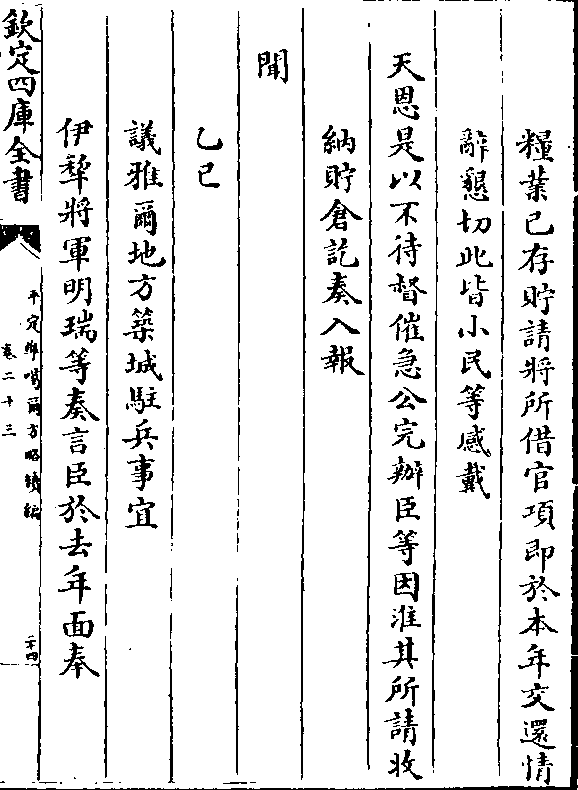 糧業已存貯請將所借官項即於本年交還情
辭懇切此皆小民等感戴
天恩是以不待督催急公完辦臣等因准其所請收
納貯倉訖奏入報
聞
乙巳
議雅爾地方築城駐兵事宜
伊犂將軍明瑞等奏言臣於去年面奉
欽定四庫全書
平定凖噶爾方略續編
卷二十三
二十四